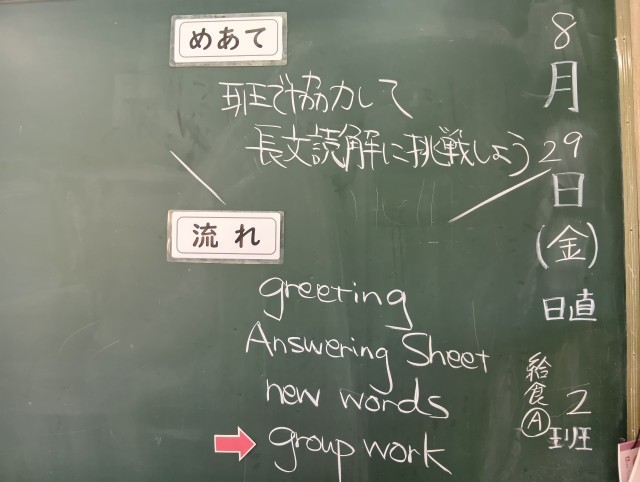 めあて
班で協力して
長文読解に挑戦しよう
流れ
greeting
Answering Sheet
new words
group work
8
月
29
日
(金)
日直
2
班
給食
A